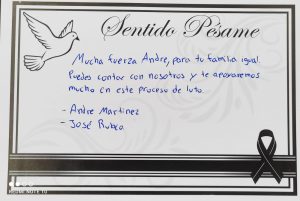 Sentido Pésame
Mucha fuerza Andre, para tu familia igual.
Puedes contar con nosotros y te apoyaremos
mucho en este proceso de luto.
- Andre Martinez
- José Rubca
REDMI NOTE 10